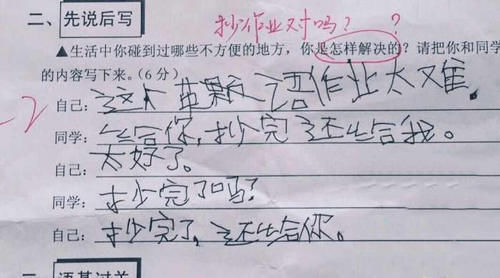 抄作业对吗？ ？
二、先说后写
▲生活中你碰到过哪些不方便的地方，你是怎样解决的？请把你和同学
的内容写下来。(6分)
-2
自己：这个 语作业太难。
同学：给你，抄完还给我。
自己：太好了。
同学：抄完了吗？
自己：抄完了，还给你。
二 语基过关